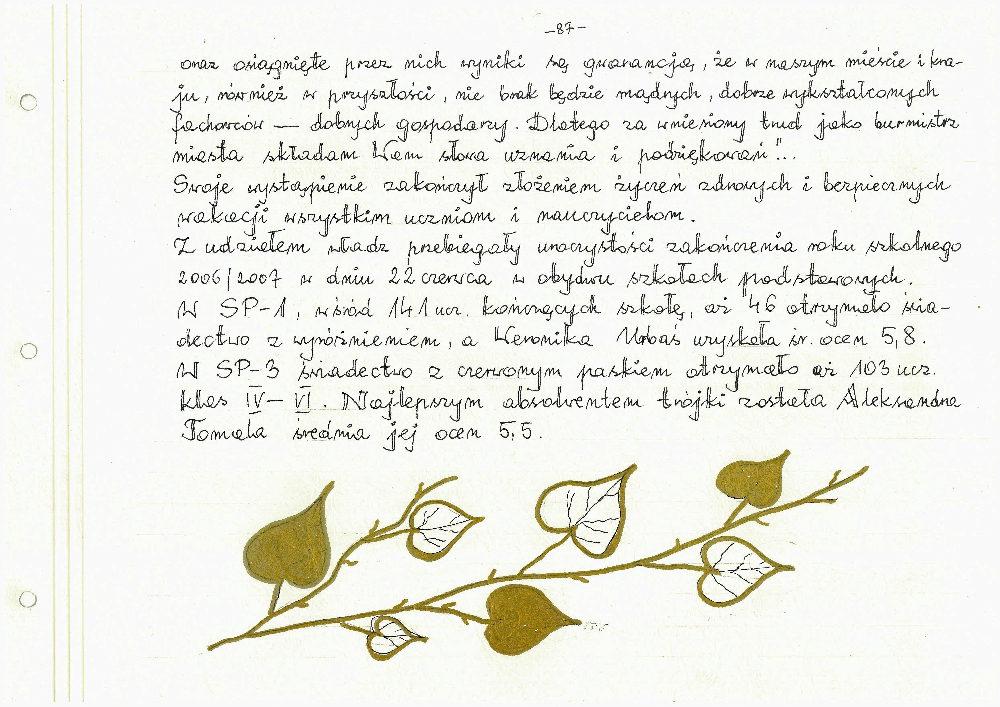 -87-
oraz osiągnięte przez nich wyniki są gwarancją, że w naszym mieście i kra-
ju, również w przyszłości, nie brak będzie mądrych, dobrze wykształconych
fachowców — dobrych gospodarzy. Dlatego za wniesiony trud jako burmistrz
miasta składam Wam słowa uznania i podziękowań"...
Swoje wystąpienie zakończył złożeniem życzeń zdrowych i bezpiecznych
wakacji wszystkim uczniom i nauczycielom.
Z udziałem władz przebiegały uroczystości zakończenia roku szkolnego
2006/2007 w dniu 22 czerwca w obydwu szkołach podstawowych.
W SP-1, wśród 141 ucz. kończących szkołę, aż 46 otrzymało świa-
dectwo z wyróżnieniem, a Weronika Urbaś uzyskała śr. ocen 5,8.
W SP-3 świadectwo z czerwonym paskiem otrzymało aż 103 ucz.
klas IV-VI. Najlepszym absolwentem trójki została Aleksandra
Tomala średnia jej ocen 5,5.